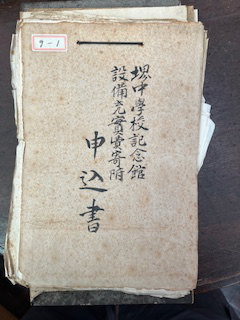 9-1
堺中學校記念館
設備充實費寄附
申込書